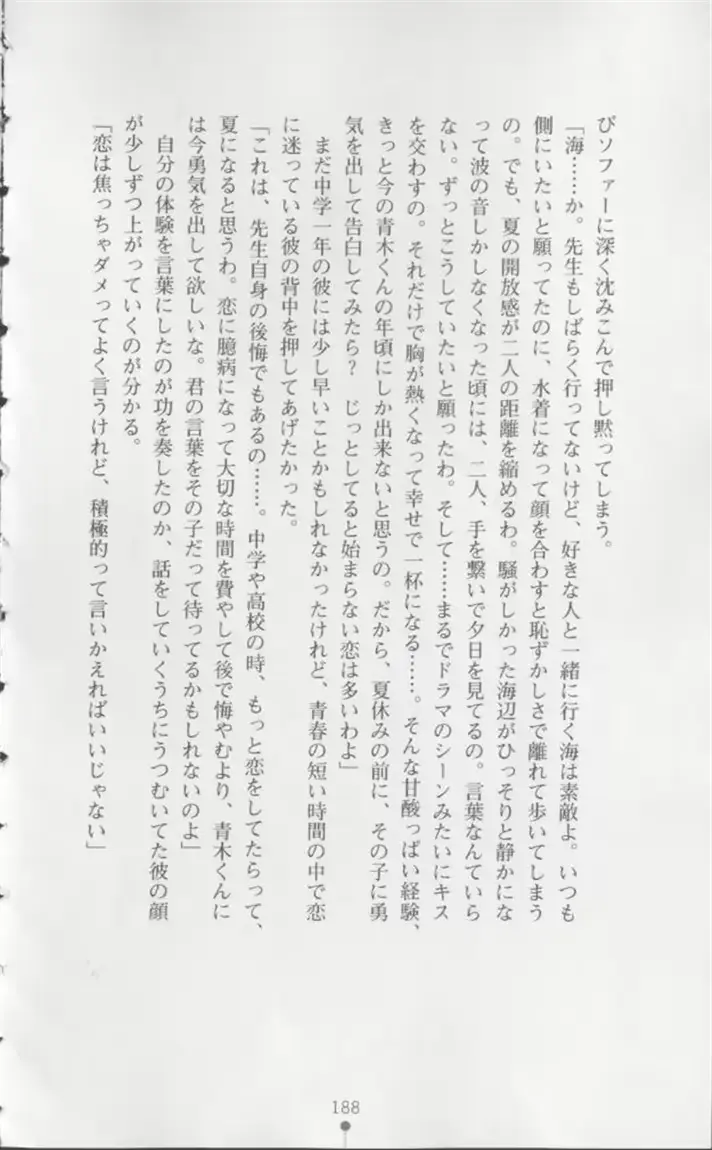 びソファーに深く沈みこんで押し黙ってしまう。
「海……か。先生もしばらく行ってないけど、好きな人と一緒に行く海は素敵よ。いつも
側にいたいと願ってたのに、水着になって顔を合わすと恥ずかしさで離れて歩いてしまう
の。でも、夏の開放感が二人の距離を縮めるわ。騒がしかった海辺がひっそりと静かにな
って波の音しかしなくなった頃には、二人、手を繋いで夕日を見てるの。言葉なんていら
ない。ずっとこうしていたいと願ったわ。そして……まるでドラマのシーンみたいにキス
を交わすの。それだけで胸が熱くなって幸せで一杯になる……。そんな甘酸っぱい経験、
きっと今の青木くんの年頃にしか出来ないと思うの。だから、夏休みの前に、その子に勇
気を出して告白してみたら？　じっとしてると始まらない恋は多いわよ」
まだ中学一年の彼には少し早いことかもしれなかったけれど、青春の短い時間の中で恋
に迷っている彼の背中を押してあげたかった。
「これは、先生自身の後悔でもあるの……。中学や高校の時、もっと恋をしてたらって、
夏になると思うわ。恋に臆病になって大切な時間を費やして後で悔やむより、青木くんに
は今勇気を出して欲しいな。君の言葉をその子だって待ってるかもしれないのよ」
自分の体験を言葉にしたのが功を奏したのか、話をしていくうちにうつむいてた彼の顔
が少しずつ上がっていくのが分かる。
「恋は焦っちゃダメってよく言うけれど、積極的って言いかえればいいじゃない」
188